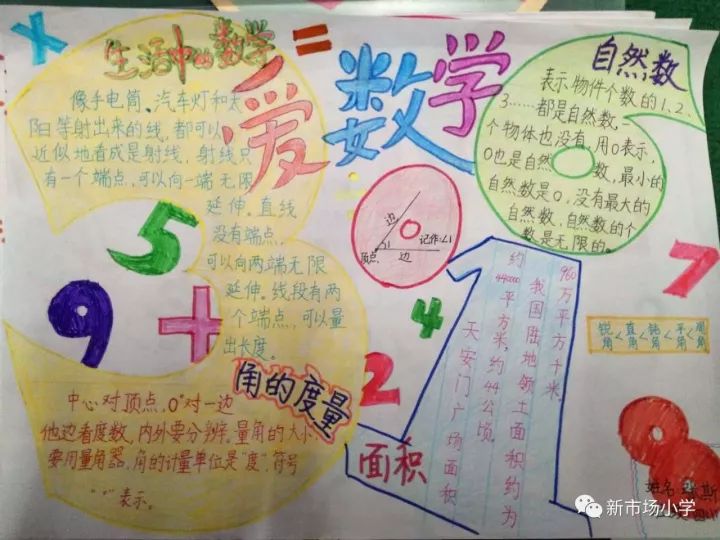 X
生活中的数学
=
爱数学
自然数
像手电筒、汽车灯和太
阳等射出来的线,都可以
近似地看成是射线,射线只
有一个端点,可以向一端无限
延伸。直线
没有端点,
可以向两端无限
延伸。线段有两
个端点,可以量
出长度。
表示物件个数的1、2、
3……都是自然数,一
个物体也没有,用0表示,
0也是自然数,最小的
自然数是0,没有最大的
自然数,自然数的个
数是无限的。
5
9
+
÷
边
1
记作:∠1
顶点
边
4
2
7
角的度量
中心对顶点,0°对一边
他边看度数,内外要分辨。量角的大小
要用量角器,角的计量单位是“度”,符号
“°”表示。
面积
天安门广场面积
约440000平方米,约44公顷。
我国陆地领土面积约为
960万平方千米。
锐角<直角<钝角<平角<周角
姓名
新市场小学